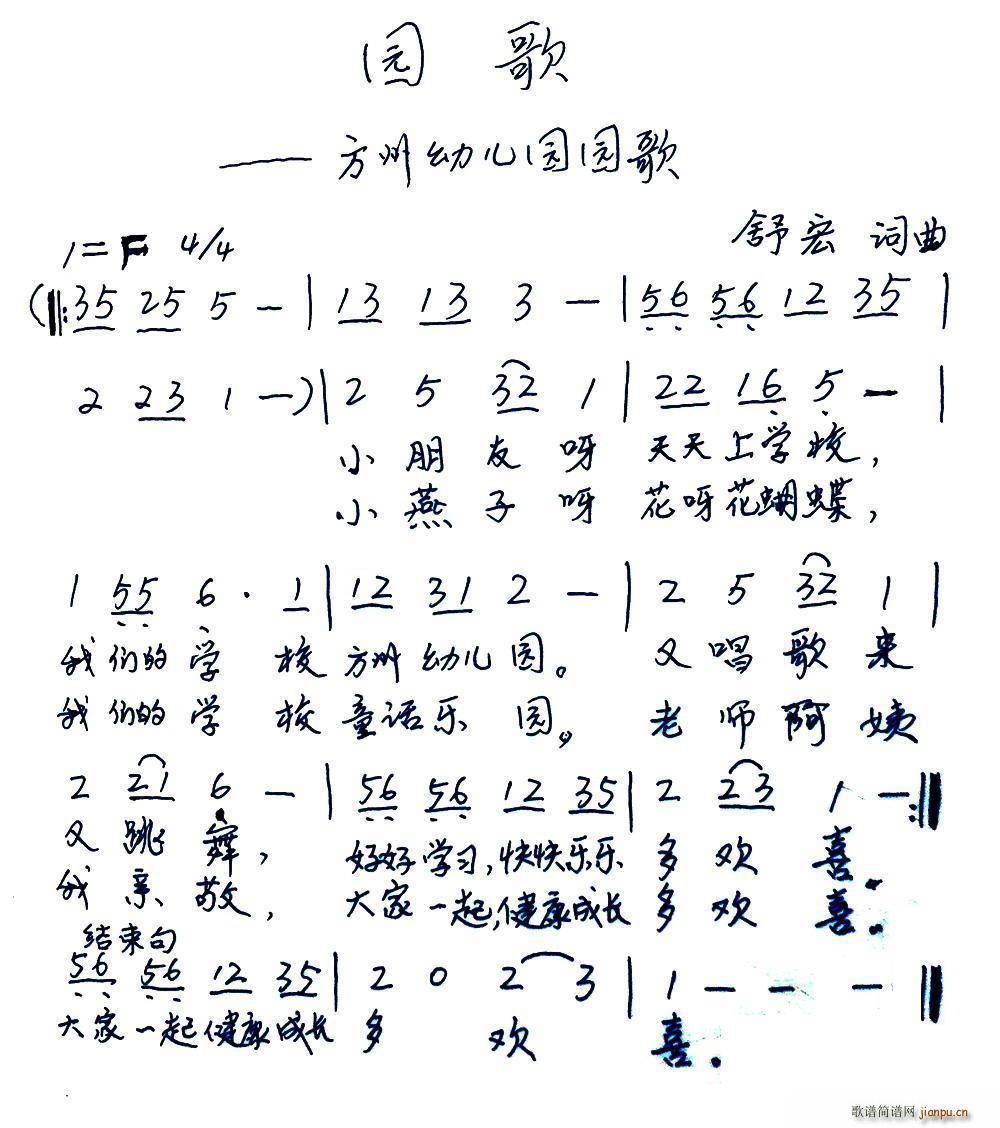 园 歌
—— 方州幼儿园园歌
舒宏 词曲
1=F 4/4
(‖: 35 25 5 — | 13 13 3 — | 5̣6̣ 5̣6̣ 12 35 |
2 23 1 —) | 2 5 32 1 | 22 16̣ 5̣ — |
小 朋 友 呀 天天上学校,
小 燕 子 呀 花呀花蝴蝶,
1 5̣5̣ 6̣ · 1 | 12 31 2 — | 2 5 32 1 |
我 们的 学 校 方州 幼儿 园。 又 唱 歌 来
我 们的 学 校 童话乐 园。 老 师 阿 姨
2 21 6̣ — | 5̣6̣ 5̣6̣ 12 35 | 2 23 1 — :‖
又 跳 舞, 好好 学习, 快快乐乐 多 欢 喜。
我 亲 敬, 大家 一起, 健康成长 多 欢 喜。
结束句
5̣6̣ 5̣6̣ 12 35 | 2 0 2 3 | 1 — — — ‖
大家 一起 健康 成长 多 欢 喜.
歌谱简谱网 jianpu.cn